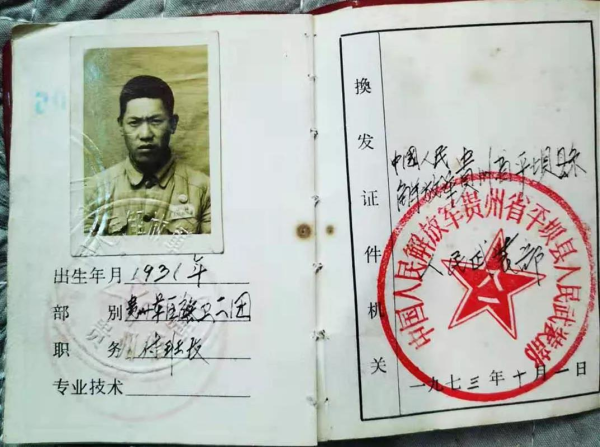 出生年月 1931年
部別 贵州军区警卫团
职务
专业技术
换发证件机关
中国人民
解放军贵州省平坝县
人民武装部
中国人民解放军贵州省平坝县人民武装部
八一
一九七三年十月一日